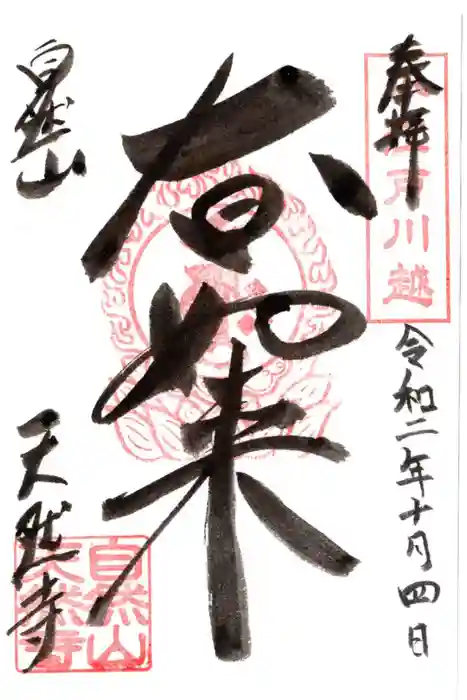 奉拝
小江戸川越
令和二年十月四日
大日如来
自然山
天然寺
自然山
天然寺